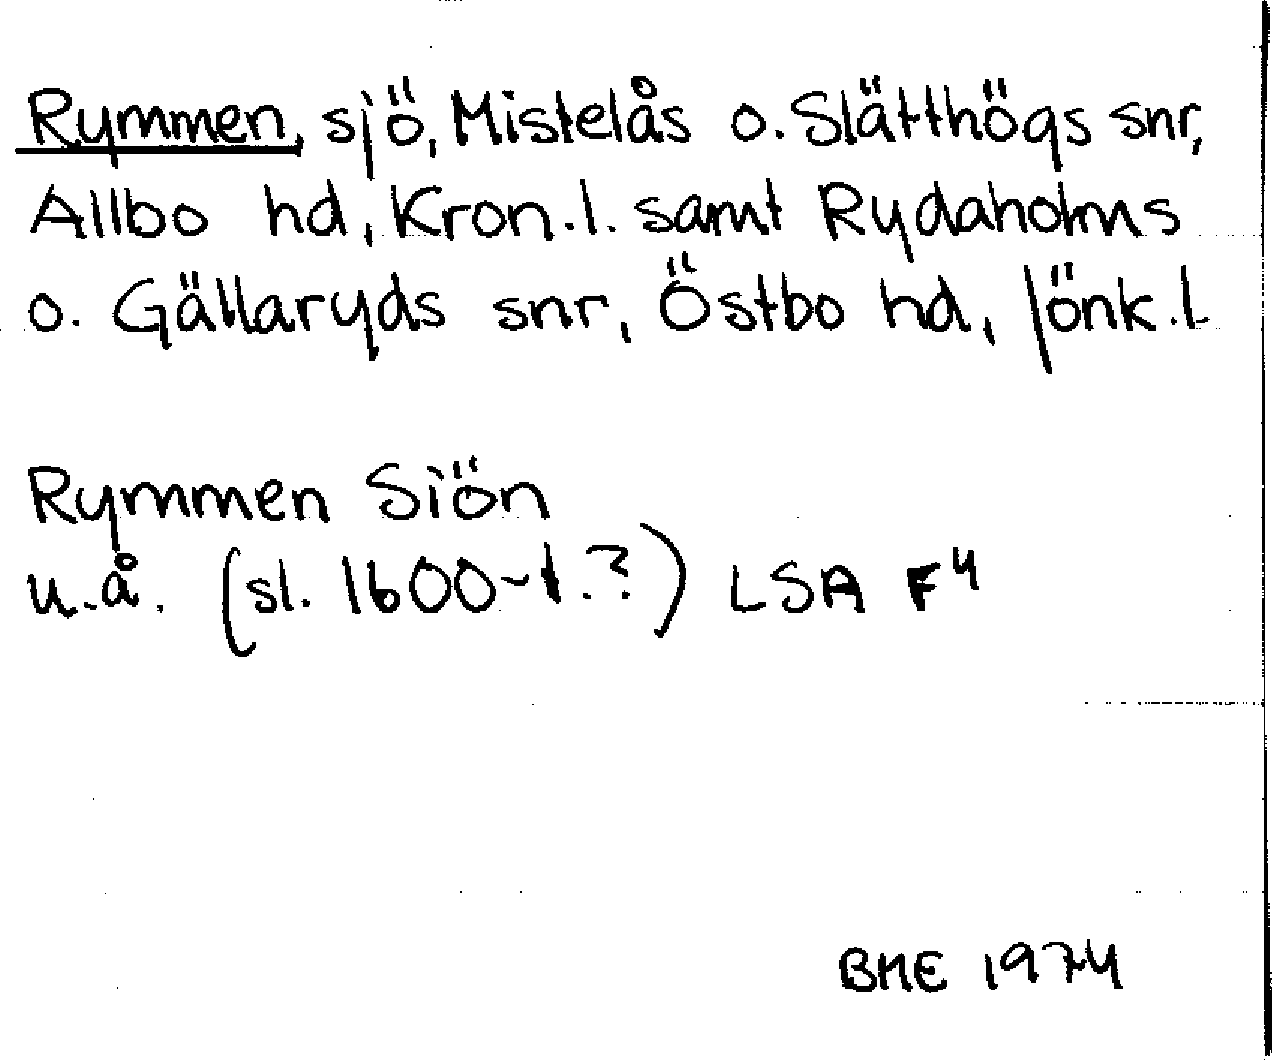 Rymmen, sjö, Mistelås o. Slätthögs snr,
Allbo hd, Kron.l. samt Rydaholms
o. Gällaryds snr, Östbo hd, Jönk.l.
Rymmen Siön
u.å. (sl. 1600-t.?) LSA F4
BME 1974